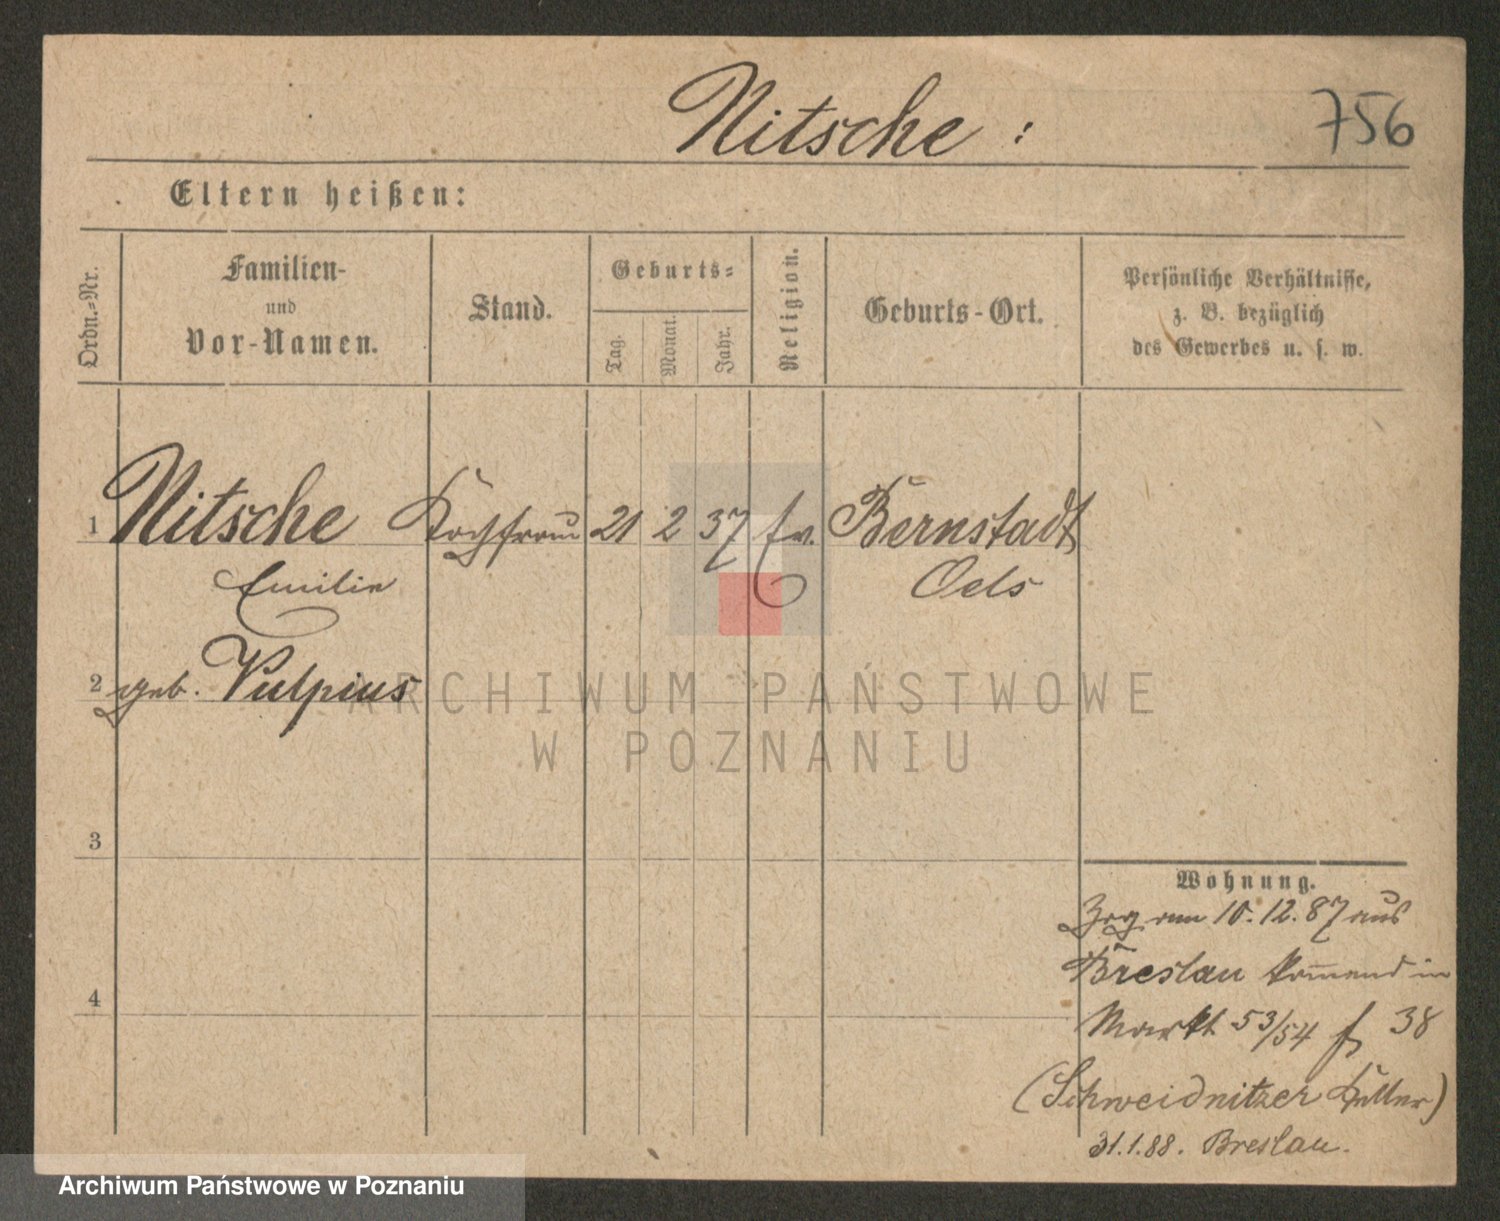 Nitsche :
756
Eltern heißen:
Ordn.-Nr.
Familien-
und
Vor-Namen.
Stand.
Geburts-
Tag.
Monat.
Jahr.
Religion.
Geburts-Ort.
Persönliche Verhältnisse,
z. B. bezüglich
des Gewerbes u. s. w.
1 Nitsche Kochfrau 21 2 37 ev. Bernstadt
Emilie Oels
2 geb. Vulpius
ARCHIWUM PAŃSTWOWE
W POZNANIU
3
4
Wohnung.
Zug. am 10. 12. 87 aus
Breslau kom̅end in
Markt 53/54 f 38
(Schweidnitzer Keller)
31.1.88. Breslau.
Archiwum Państwowe w Poznaniu